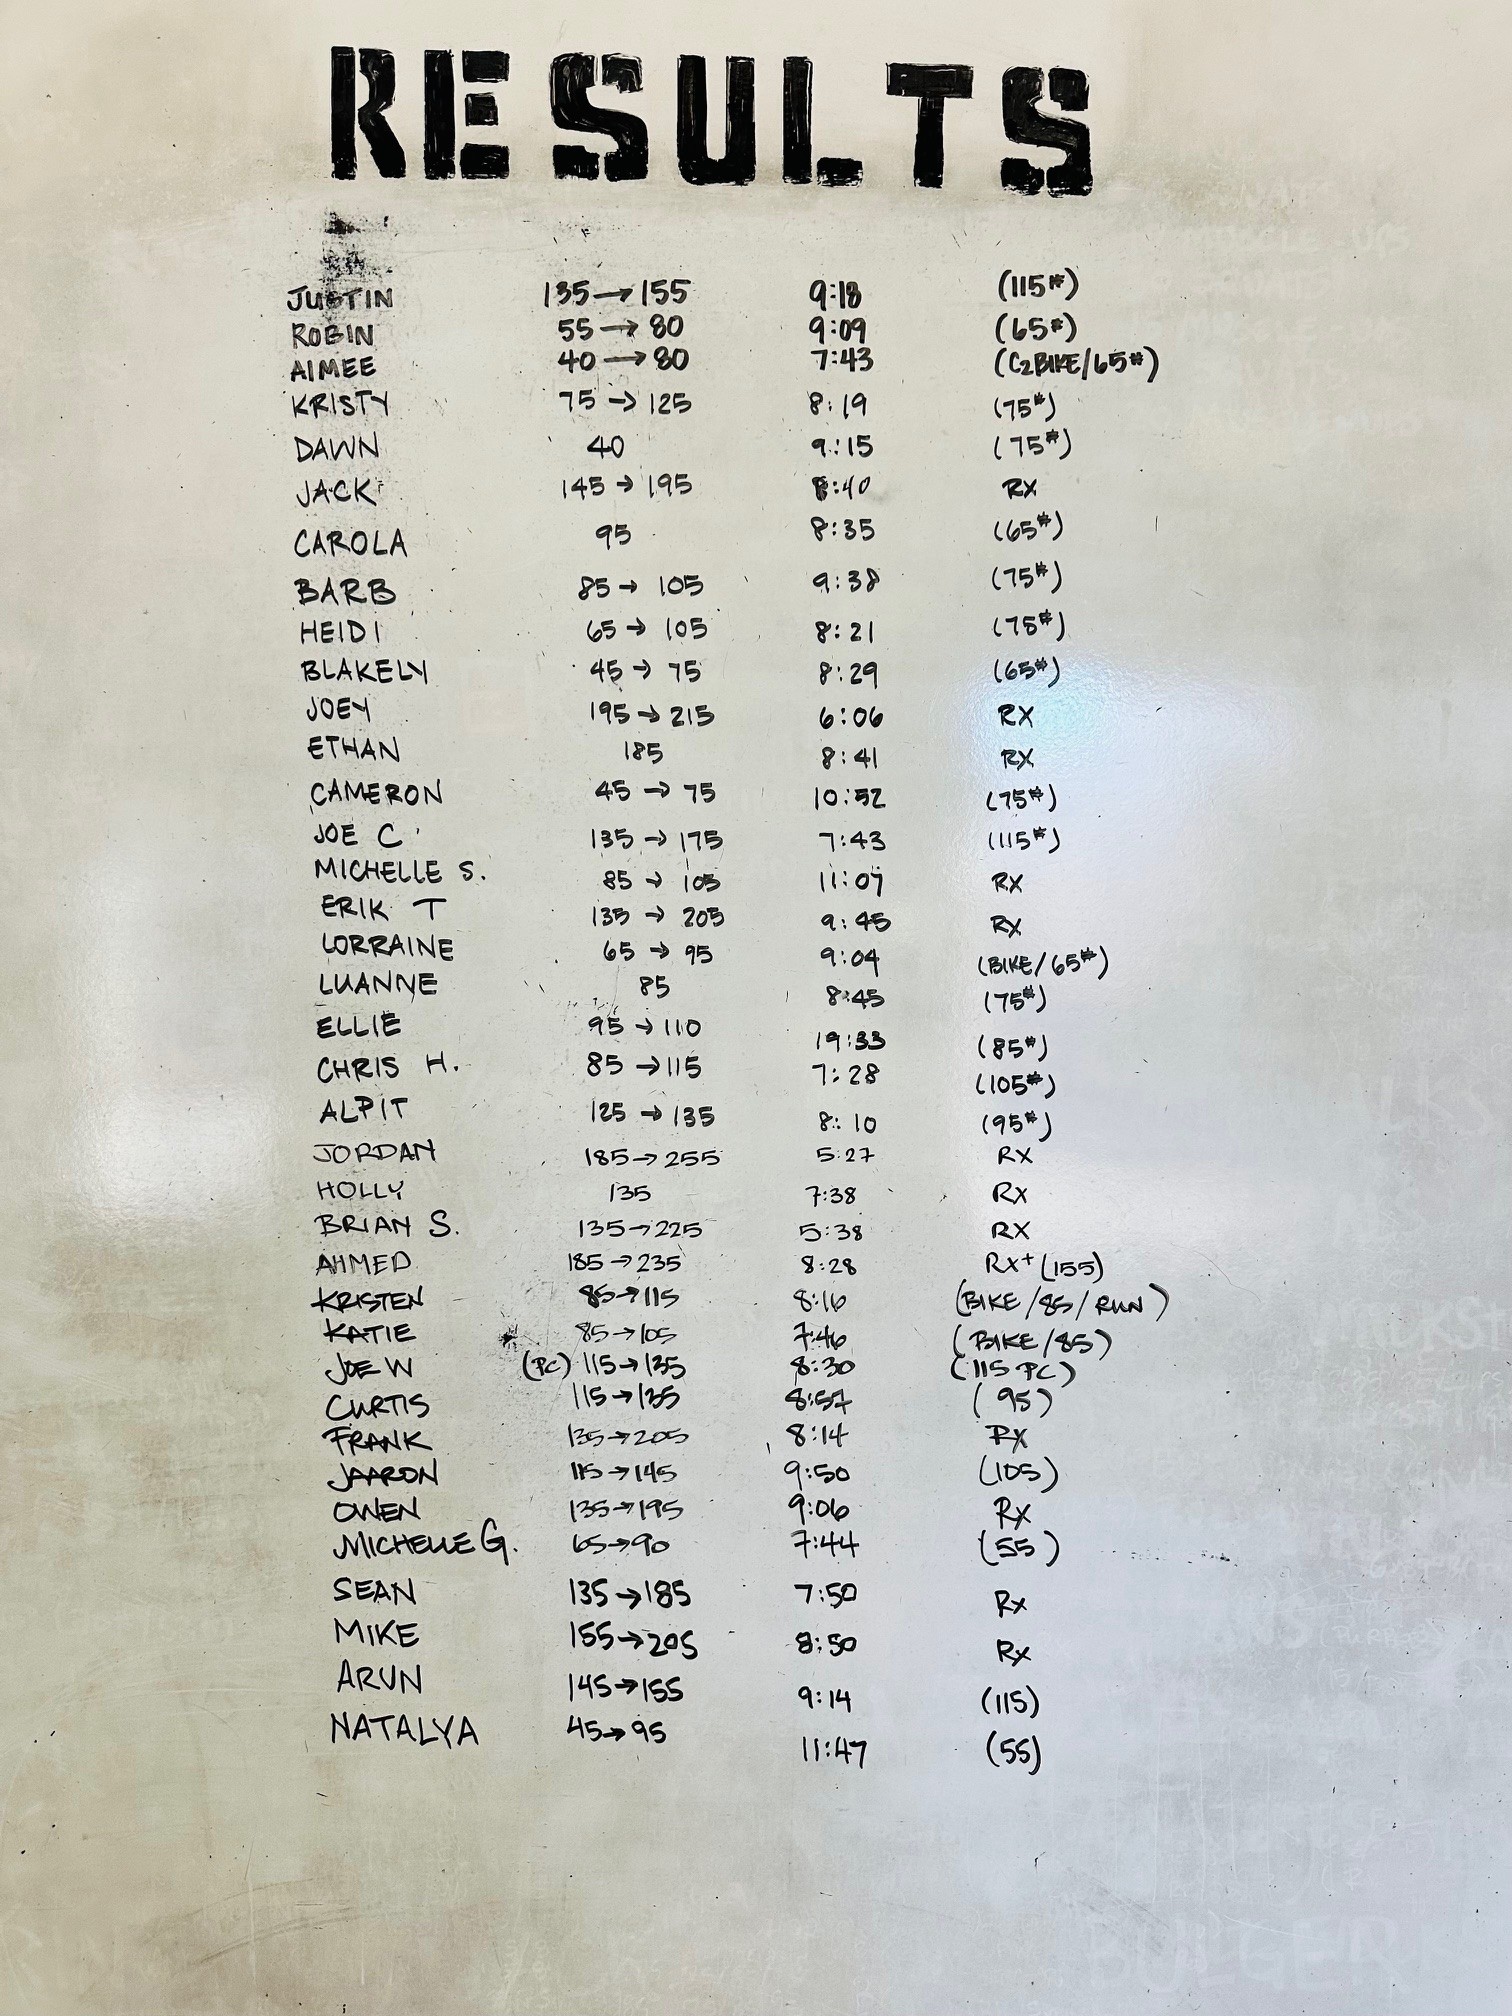 RESULTS
JUSTIN 135→155 9:18 (115#)
ROBIN 55→80 9:09 (65#)
AIMEE 40→80 7:43 (C2BIKE/65#)
KRISTY 75→125 8:19 (75#)
DAWN 40 9:15 (75#)
JACK 145→195 8:40 RX
CAROLA 95 8:35 (65#)
BARB 85→105 9:38 (75#)
HEIDI 65→105 8:21 (75#)
BLAKELY 45→75 8:29 (65#)
JOEY 195→215 6:06 RX
ETHAN 185 8:41 RX
CAMERON 45→75 10:52 (75#)
JOE C 135→175 7:43 (115#)
MICHELLE S. 85→105 11:07 RX
ERIK T 135→205 9:45 RX
LORRAINE 65→95 9:04 (BIKE/65#)
LUANNE 85 8:45 (75#)
ELLIE 95→110 19:33 (85#)
CHRIS H. 85→115 7:28 (105#)
ALPIT 125→135 8:10 (95#)
JORDAN 185→255 5:27 RX
HOLLY 135 7:38 RX
BRIAN S. 135→225 5:38 RX
AHMED 185→235 8:28 RX+ (155)
KRISTEN 85→115 8:16 (BIKE/85/RUN)
KATIE 85→105 7:46 (BIKE/85)
JOE W (PC) 115→135 8:30 (115 PC)
CURTIS 115→135 8:57 (95)
FRANK 135→205 8:14 RX
JAARON 115→145 9:50 (105)
OWEN 135→195 9:06 RX
MICHELLE G. 65→90 7:44 (55)
SEAN 135→185 7:50 Rx
MIKE 155→205 8:50 Rx
ARUN 145→155 9:14 (115)
NATALYA 45→95 11:47 (55)